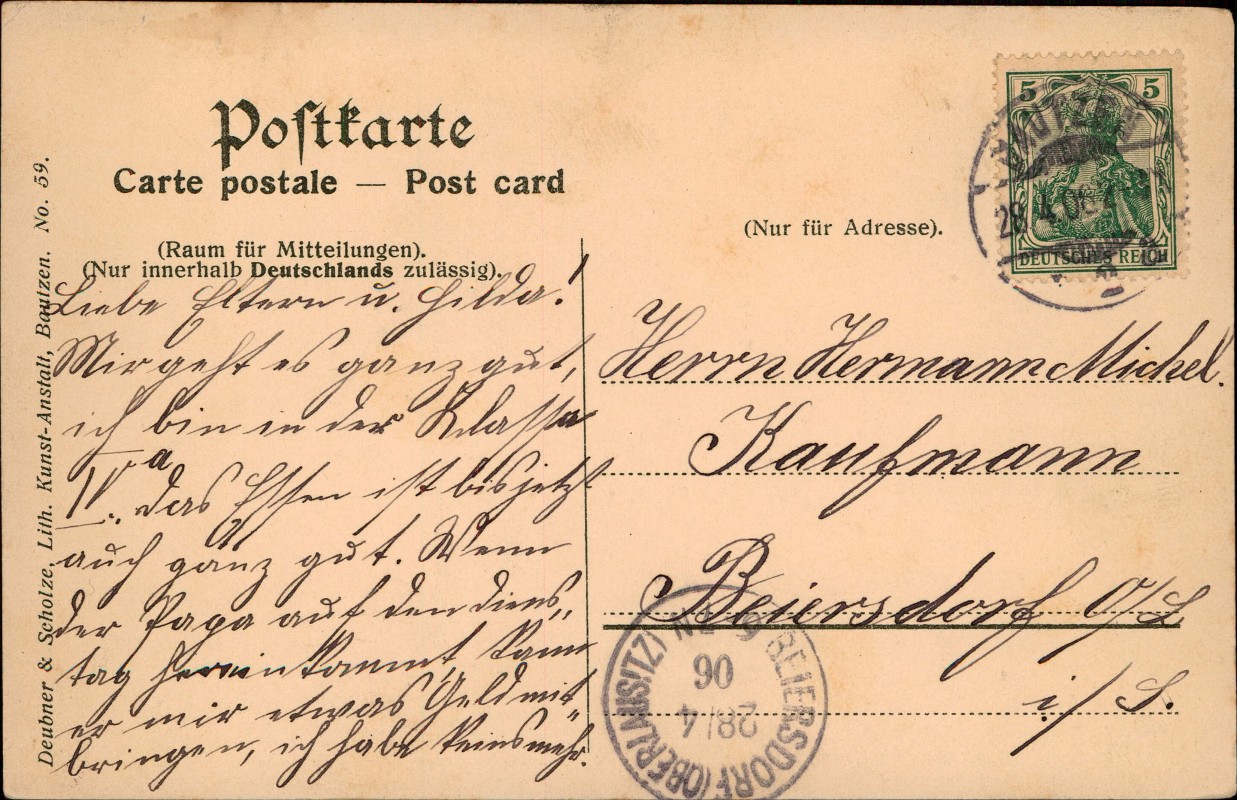 Postkarte
Carte postale — Post card
(Raum für Mitteilungen).
(Nur innerhalb Deutschlands zulässig).
(Nur für Adresse).
Deubner & Scholze, Lith. Kunst-Anstalt, Bautzen. No. 59.
Liebe Eltern u. Hilda!
Mir geht es ganz gut,
ich bin in der Klasse
IVa. das Essen ist bis jetzt
auch ganz gut. Wenn
der Papa auf den Diens„
tag herein kommt, kann
er mir etwas Geld mit„
bringen, ich habe keins mehr.
Herrn Hermann Michel.
Kaufmann
Beiersdorf O/L
i/S.
5 5
DEUTSCHES REICH
BAUTZEN
28.4.06
BEIERSDORF (OBERLAUSITZ)
28/4
06